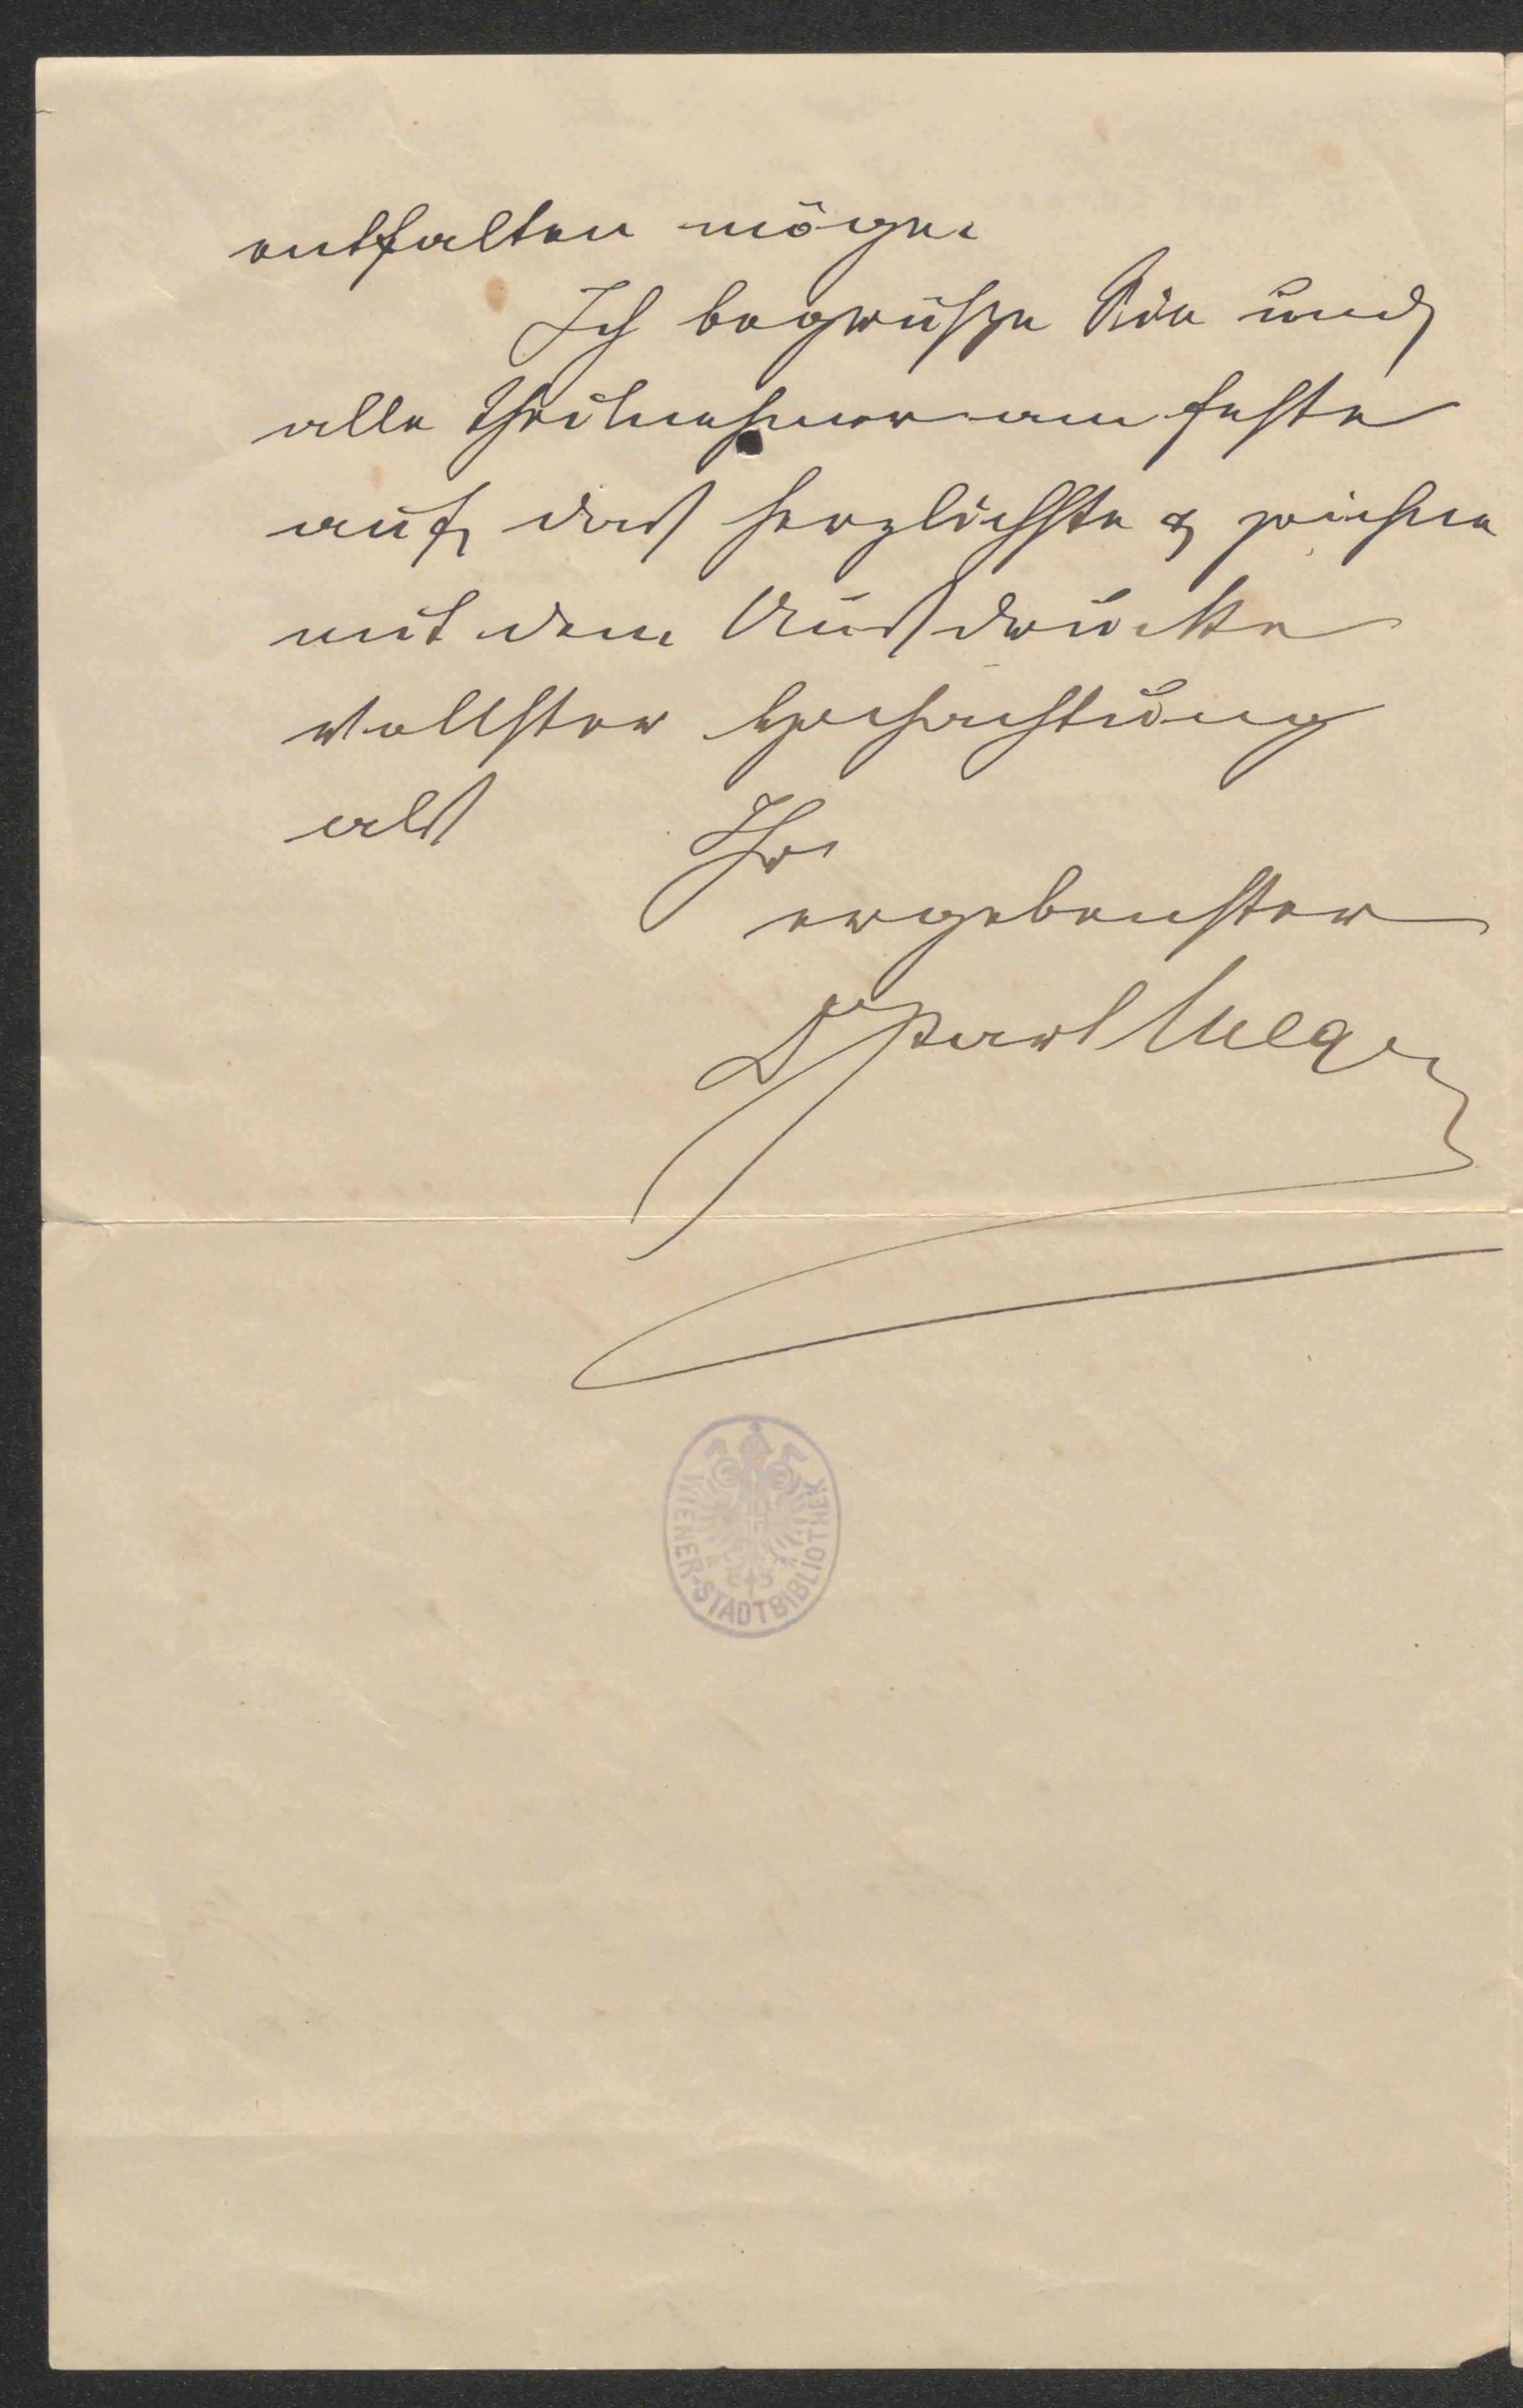 entfalten möge.
Ich begrüße Sie und
alle Theilnehmer am Feste
auf das herzlichste & zeichne
mit dem Ausdrucke
vollster Hochachtung
als Ihr
ergebenster
Dr Karl Lueger
WIENER-STADTBIBLIOTHEK